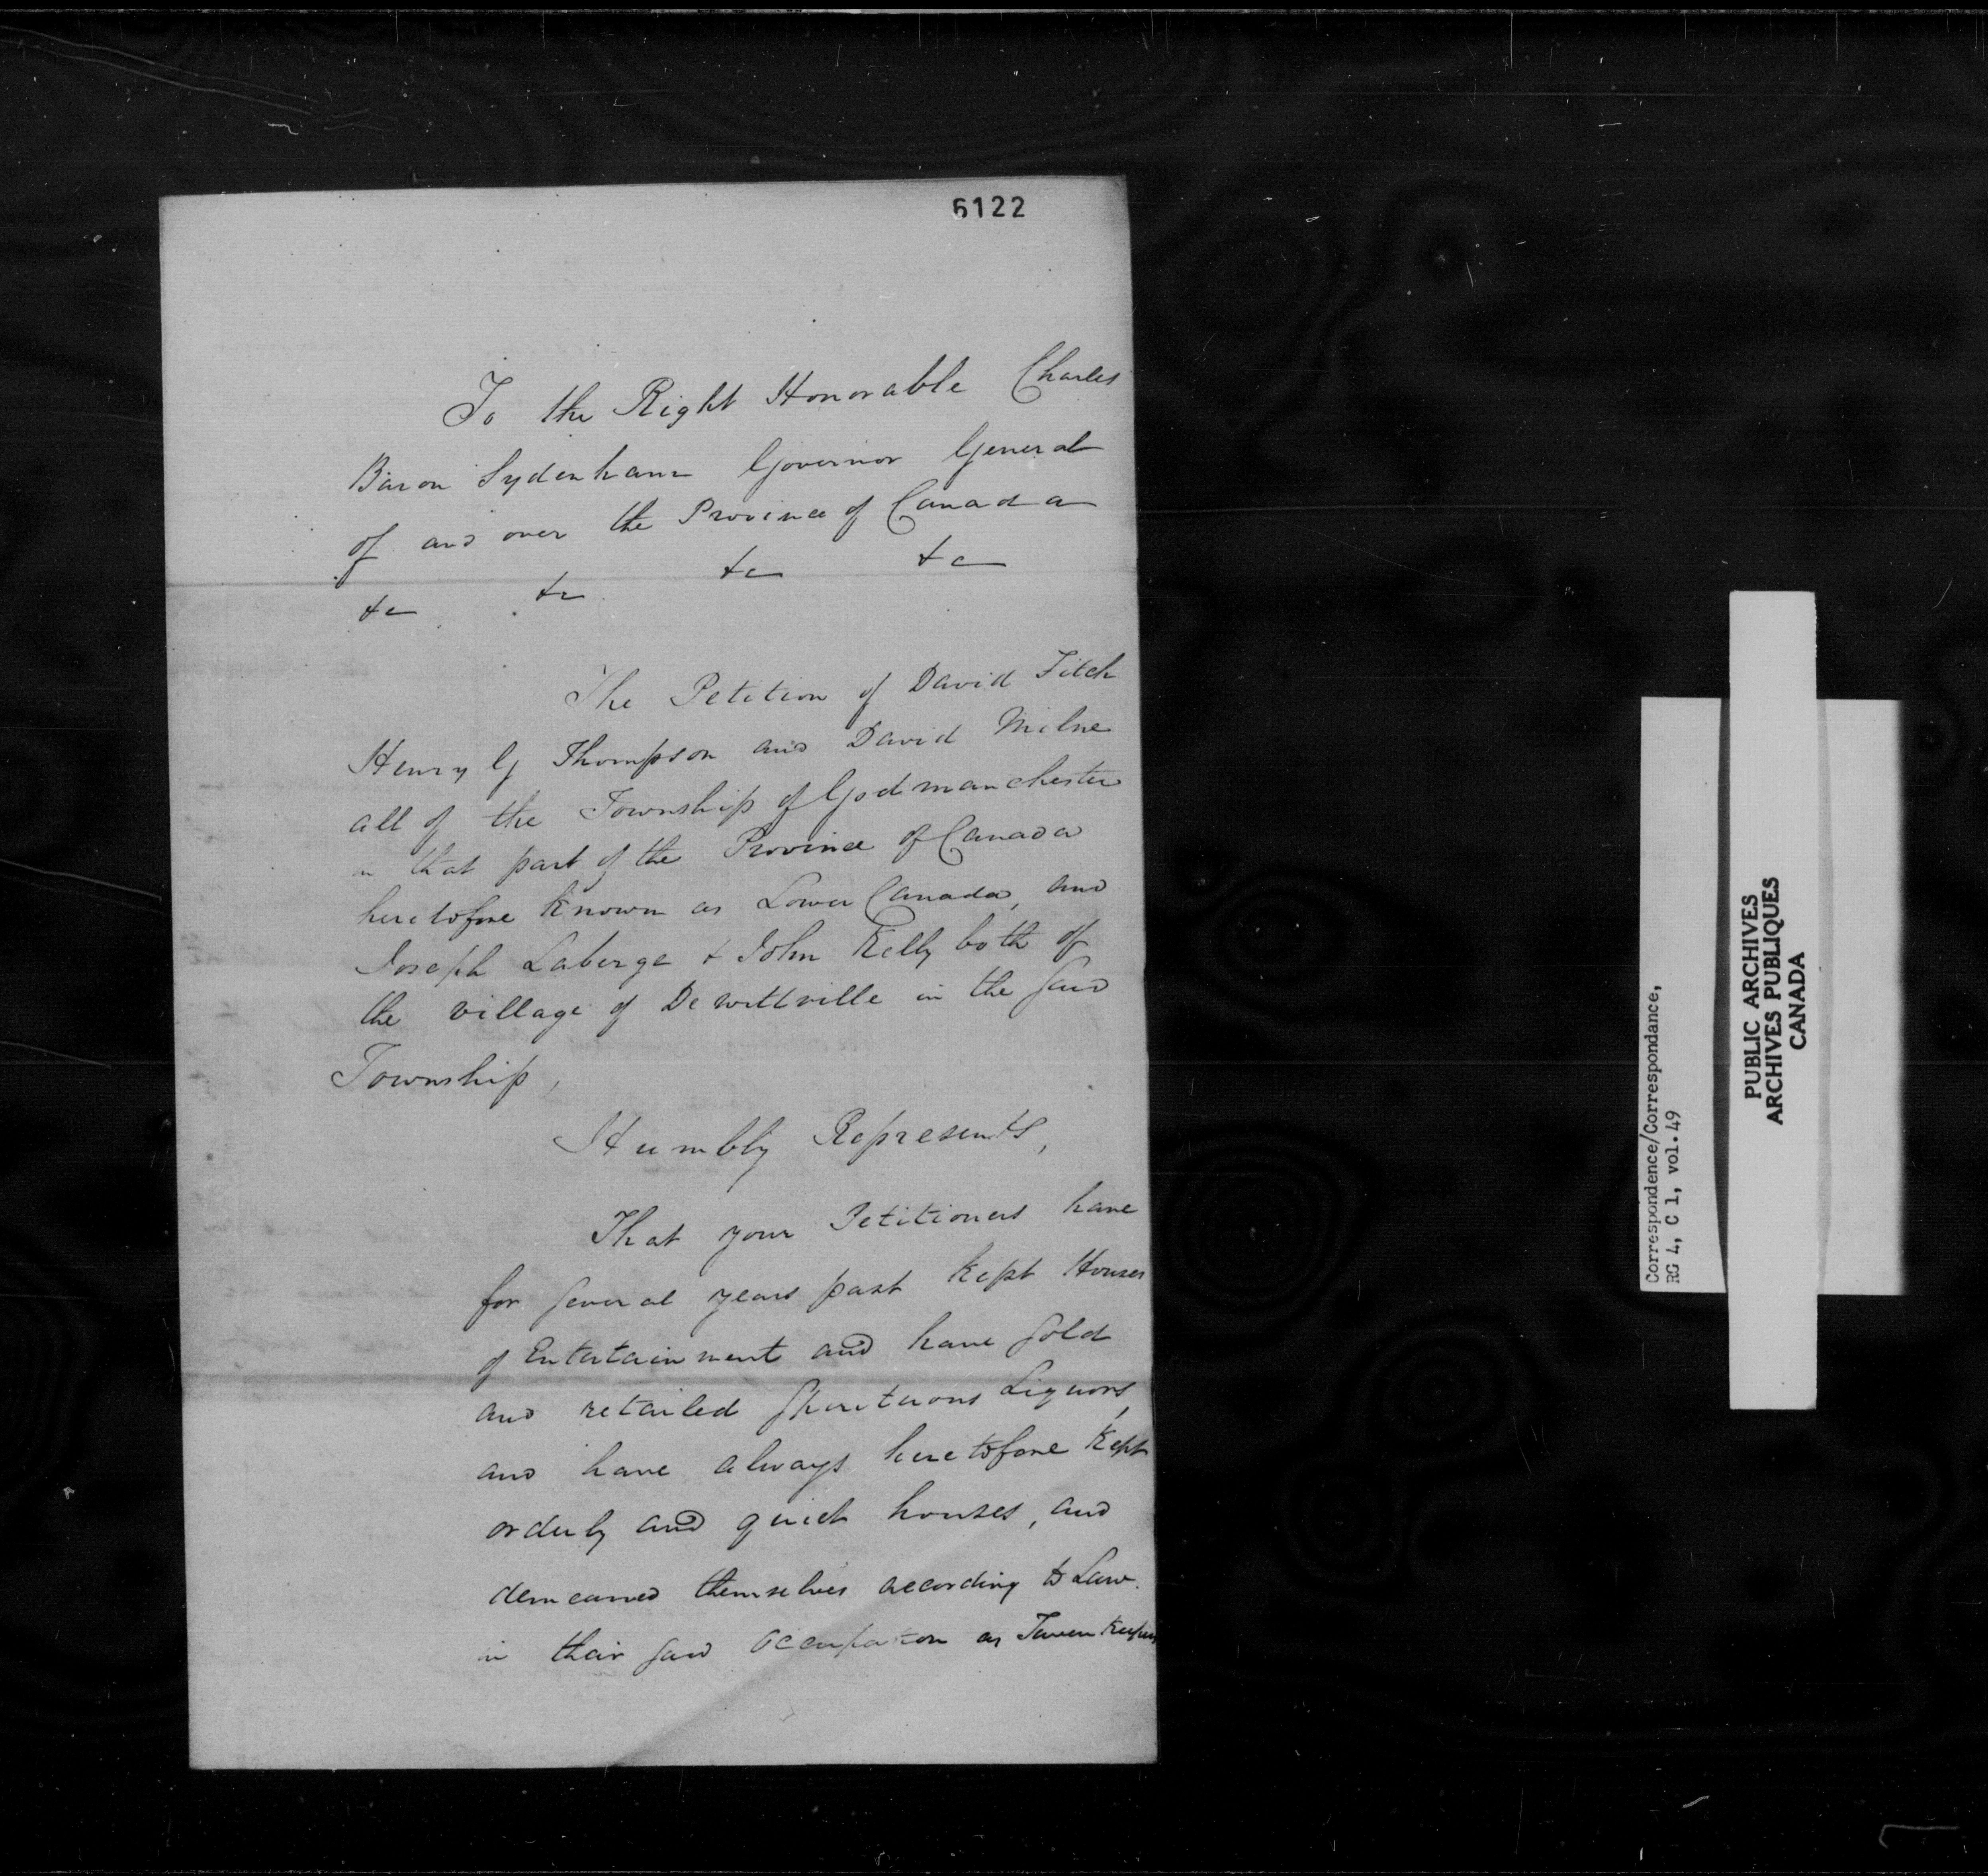 6122
To the Right Honorable Charles
Baron Sydenham Governor General
of and over the Province of Canada
&c &c &c &c
The Petition of David Fitch
Henry G Thompson and David Milne
all of the Township of Godmanchester
in that part of the Province of Canada
heretofore known as Lower Canada, and
Joseph Laberge & John Kelly both of
the village of Dewittville in the said
Township,
Humbly Represents,
That your Petitioners have
for several years past kept Houses
of Entertainment and have sold
and retailed Spirituous Liquors,
and have always heretofore kept
orderly and quiet houses, and
demeaned themselves according to Law.
in their said occupation as Tavern Keepers
Correspondence/Correspondance,
RG 4, C 1, vol.49
PUBLIC ARCHIVES
ARCHIVES PUBLIQUES
CANADA